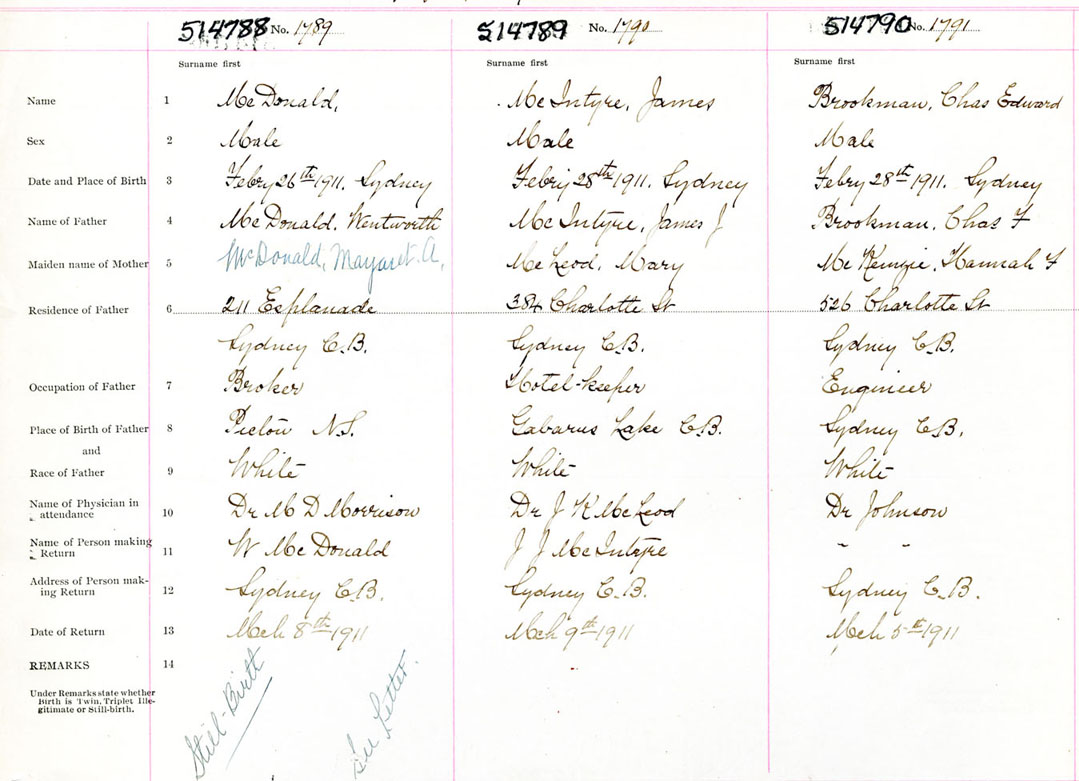 514788 No. 1789 514789 No. 1790 514790 No. 1791
Surname first Surname first Surname first
Name 1 McDonald, McIntyre, James Brookman, Chas Edward
Sex 2 Male Male Male
Date and Place of Birth 3 Febry 26th 1911. Sydney Febry 28th 1911. Sydney Febry 28th 1911. Sydney
Name of Father 4 McDonald. Wentworth McIntyre, James J Brookman, Chas F
Maiden name of Mother 5 McDonald, Margaret. A. McLeod, Mary McKenzie, Hannah F
Residence of Father 6 211 Esplanade 384 Charlotte St 526 Charlotte St
Sydney C.B. Sydney C.B. Sydney C.B.
Occupation of Father 7 Broker Hotel-keeper Engineer
Place of Birth of Father 8 Pictou N.S. Gabarus Lake C.B. Sydney C.B.
and
Race of Father 9 White White White
Name of Physician in
attendance 10 Dr M D Morrison Dr J K McLeod Dr Johnson
Name of Person making
Return 11 W McDonald J J McIntyre - -
Address of Person mak-
ing Return 12 Sydney C.B. Sydney C.B. Sydney C.B.
Date of Return 13 Mch 8th 1911 Mch 9th 1911 Mch 5th 1911
REMARKS 14
Still-Birth See Letter.
Under Remarks state whether
Birth is Twin, Triplet Ille-
gitimate or Still-birth.